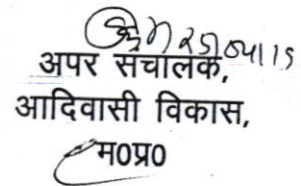 25/04/15
अपर संचालक,
आदिवासी विकास,
म0प्र0